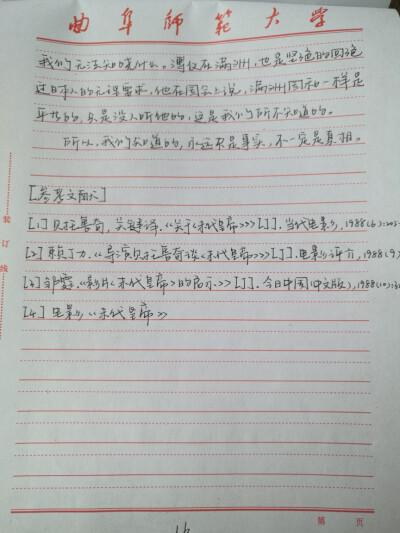 曲阜师范大学
我们无法知晓什么。溥仪在满洲，也是坚绝的回绝
过日本人的无理要求，他在国会上说，满洲国和一样是
平等的，只是没人听他的，这是我们所不知道的。
所以，我们知道的，永远只是事实，不一定是真相。
[参考文献]
[1] 贝托鲁奇，关键译.《关于<末代皇帝>》[J].当代电影，1988(6):
[2] 赖丁力.《导演贝托鲁奇谈<末代皇帝>》[J].电影评介，1988(9)
[3] 邹霆.《影片<末代皇帝>的启示》[J].今日中国(中文版)，1988(10):3
[4] 电影《末代皇帝》
装订线
第 页
16